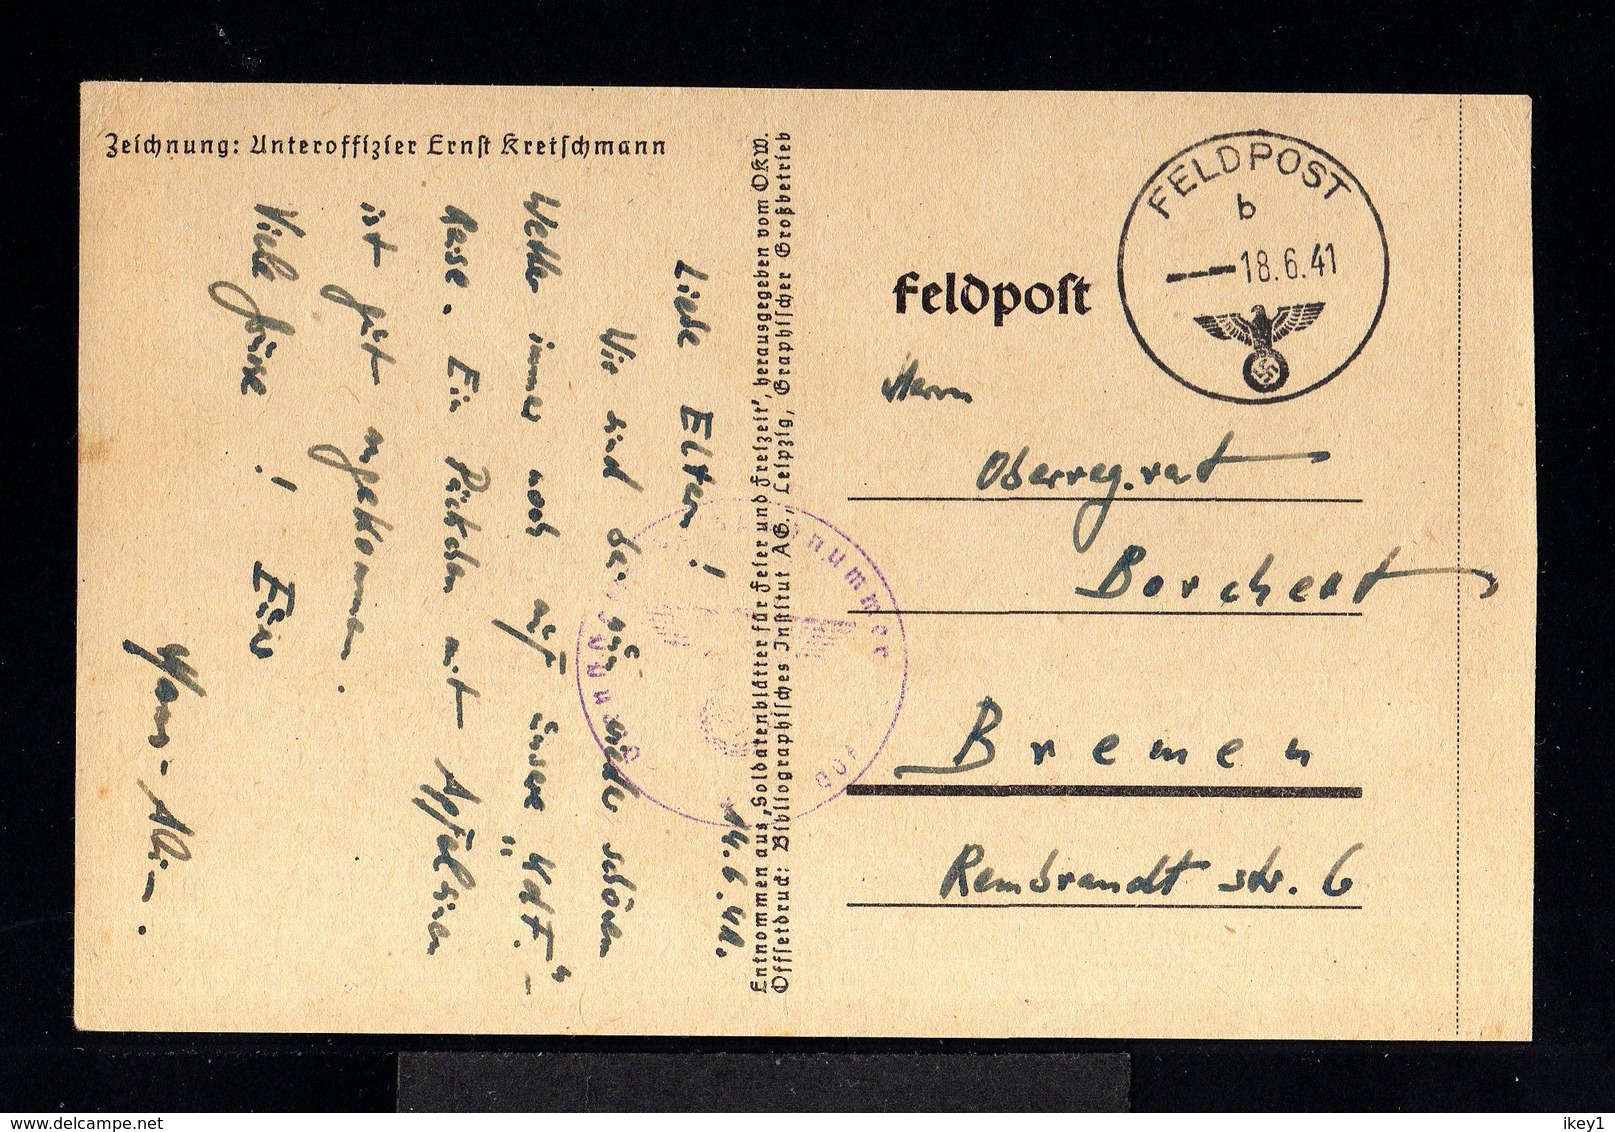 Zeichnung: Unteroffizier Ernst Kretschmann
14.6.41.
Liebe Eltern!
Wir sind bei wieder schönem
Wetter immer noch auf unserer "Kdt."-
Reise. Ein Päckchen mit Apfelsinen
ist gut angekommen.
Viele Grüsse! Euer
Hans-
Entnommen aus „Soldatenblätter für Feier und Freizeit", herausgegeben vom OKW.
Offsetdruck: Bibliographisches Institut AG., Leipzig, Graphischer Großbetrieb
nummer
FELDPOST
b
18.6.41
Feldpost
Herrn
Oberreg.rat
Borchert
Bremen
Rembrandt str. 6
delcampe.net
ikey1